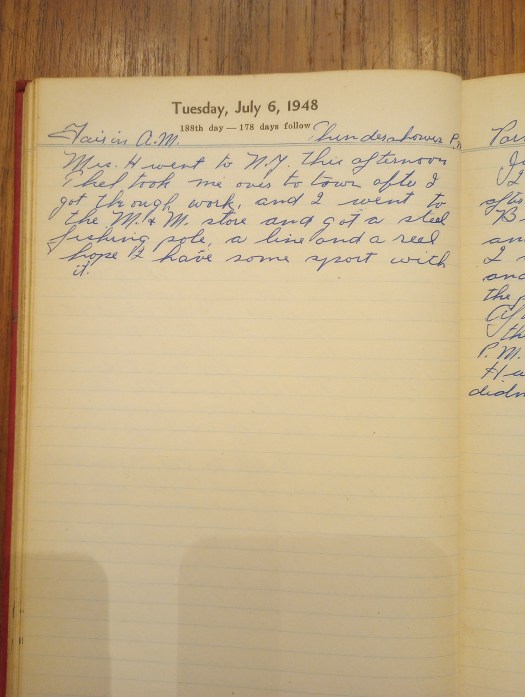 Tuesday, July 6, 1948
188th day — 178 days follow
Fair in A.M. Thundershowers P.M
Mrs. H went to N.Y. this afternoon
Thel took me over to town after I
got through work, and I went to
the M. & M. store and got a steel
fishing pole, a line and a reel
hope I have some sport with
it.
P.M.